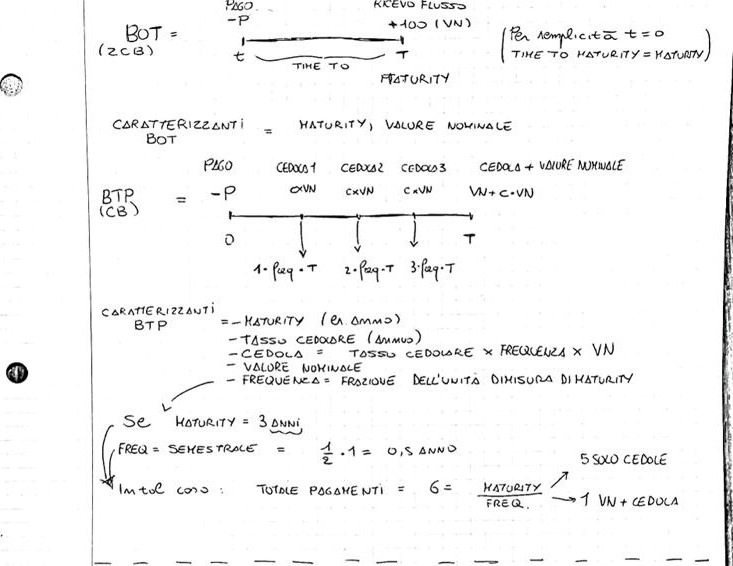 PAGO RICEVO FLUSSO
BOT = -P +100 (VN) (Per semplicità t=0
(ZCB) t T TIME TO MATURITY = MATURITY)
TIME TO
MATURITY
CARATTERIZZANTI = MATURITY, VALORE NOMINALE
BOT
PAGO CEDOLA1 CEDOLA2 CEDOLA3 CEDOLA + VALORE NOMINALE
BTP = -P CxVN CxVN CxVN VN+C·VN
(CB)
0 T
1·freq·T 2·freq·T 3·freq·T
CARATTERIZZANTI = - MATURITY (es. ANNO)
BTP
- TASSO CEDOLARE (ANNUO)
- CEDOLA = TASSO CEDOLARE × FREQUENZA × VN
- VALORE NOMINALE
- FREQUENZA = FRAZIONE DELL'UNITÀ DI MISURA DI MATURITY
Se MATURITY = 3 ANNI
FREQ = SEMESTRALE = 1/2 · 1 = 0,5 ANNO
In tal caso: TOTALE PAGAMENTI = 6 = MATURITY/FREQ.
5 SOLO CEDOLE
1 VN + CEDOLA